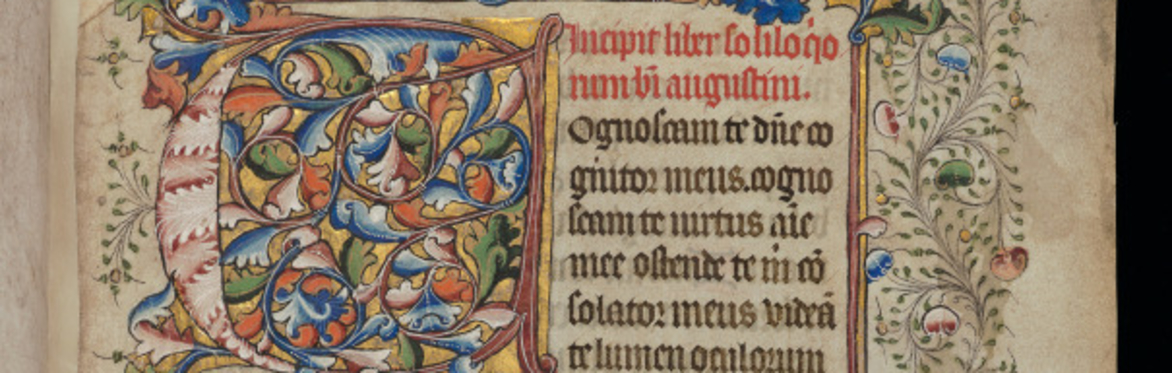 Incipit liber soliloqio
num bi augustini.
Cognoscam te dn̄e co
gnitor meus. cogno
scam te uirtus aīe
mee ostende te m̄ cō
solator meus videā
te lumen oculorum